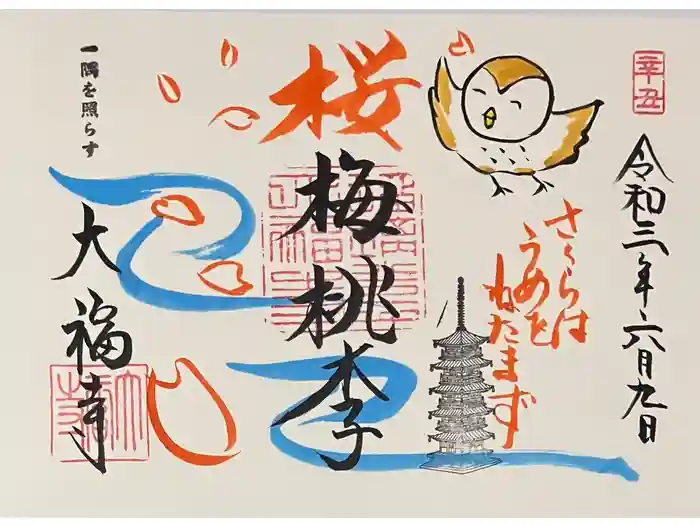 辛丑
令和三年六月九日
さくらは
うめを
ねたまず
桜
梅桃李
一隅を照らす
大福寺